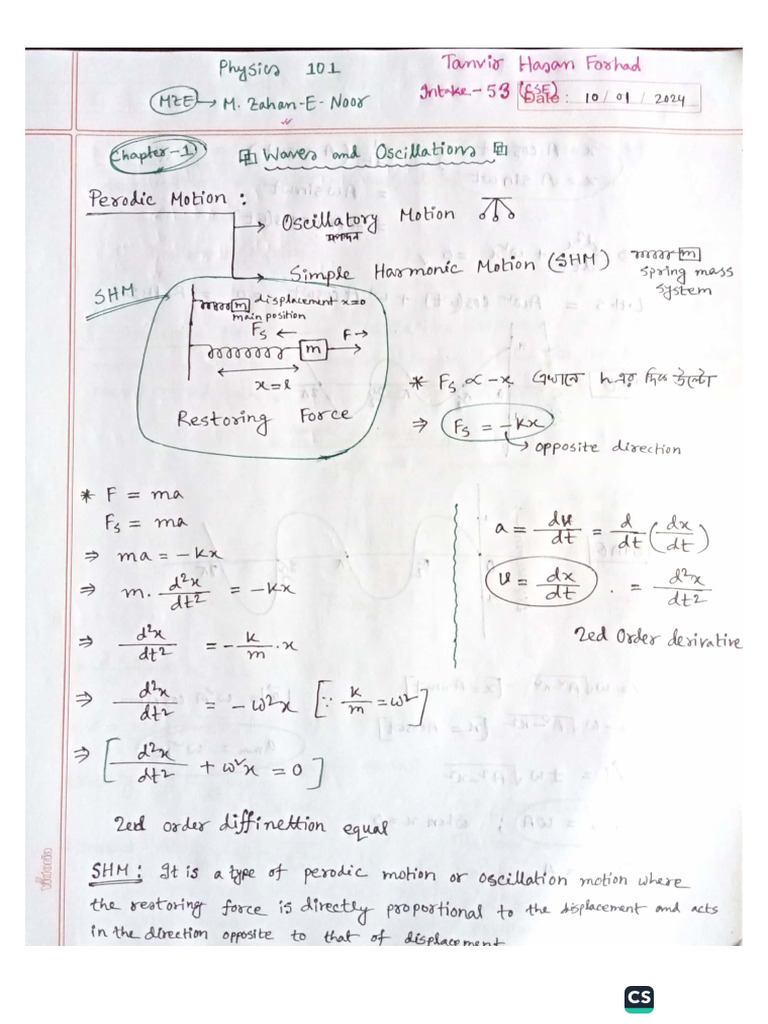 Physics 101
Tanvir Hasan Forhad
Intake-53 (CSE)
MZE → M. Zahan-E-Noor
Date : 10/01/2024
Chapter-1
Waves and Oscillations
Perodic Motion :
→ Oscillatory Motion
স্পন্দন
→ Simple Harmonic Motion (SHM)
m
Spring mass
System
SHM
m displacement x=0
main position
Fs ← F→
m
x=l
Restoring Force
* Fs ∝ -x. এখানে এর দিক উল্টো
⇒ Fs = -kx
→ opposite direction
* F = ma
Fs = ma
⇒ ma = -kx
⇒ m. d²x/dt² = -kx
⇒ d²x/dt² = - k/m .x
⇒ d²x/dt² = - ω²x [∵ k/m = ω²]
⇒ [d²x/dt² + ω²x = 0]
a = dv/dt = d/dt (dx/dt)
v = dx/dt . = d²x/dt²
2ed Order derivative
2ed order diffinettion equal
SHM : It is a type of perodic motion or oscillation motion where
the restoring force is directly proportional to the displacement and acts
in the direction opposite to that of displacement
CS